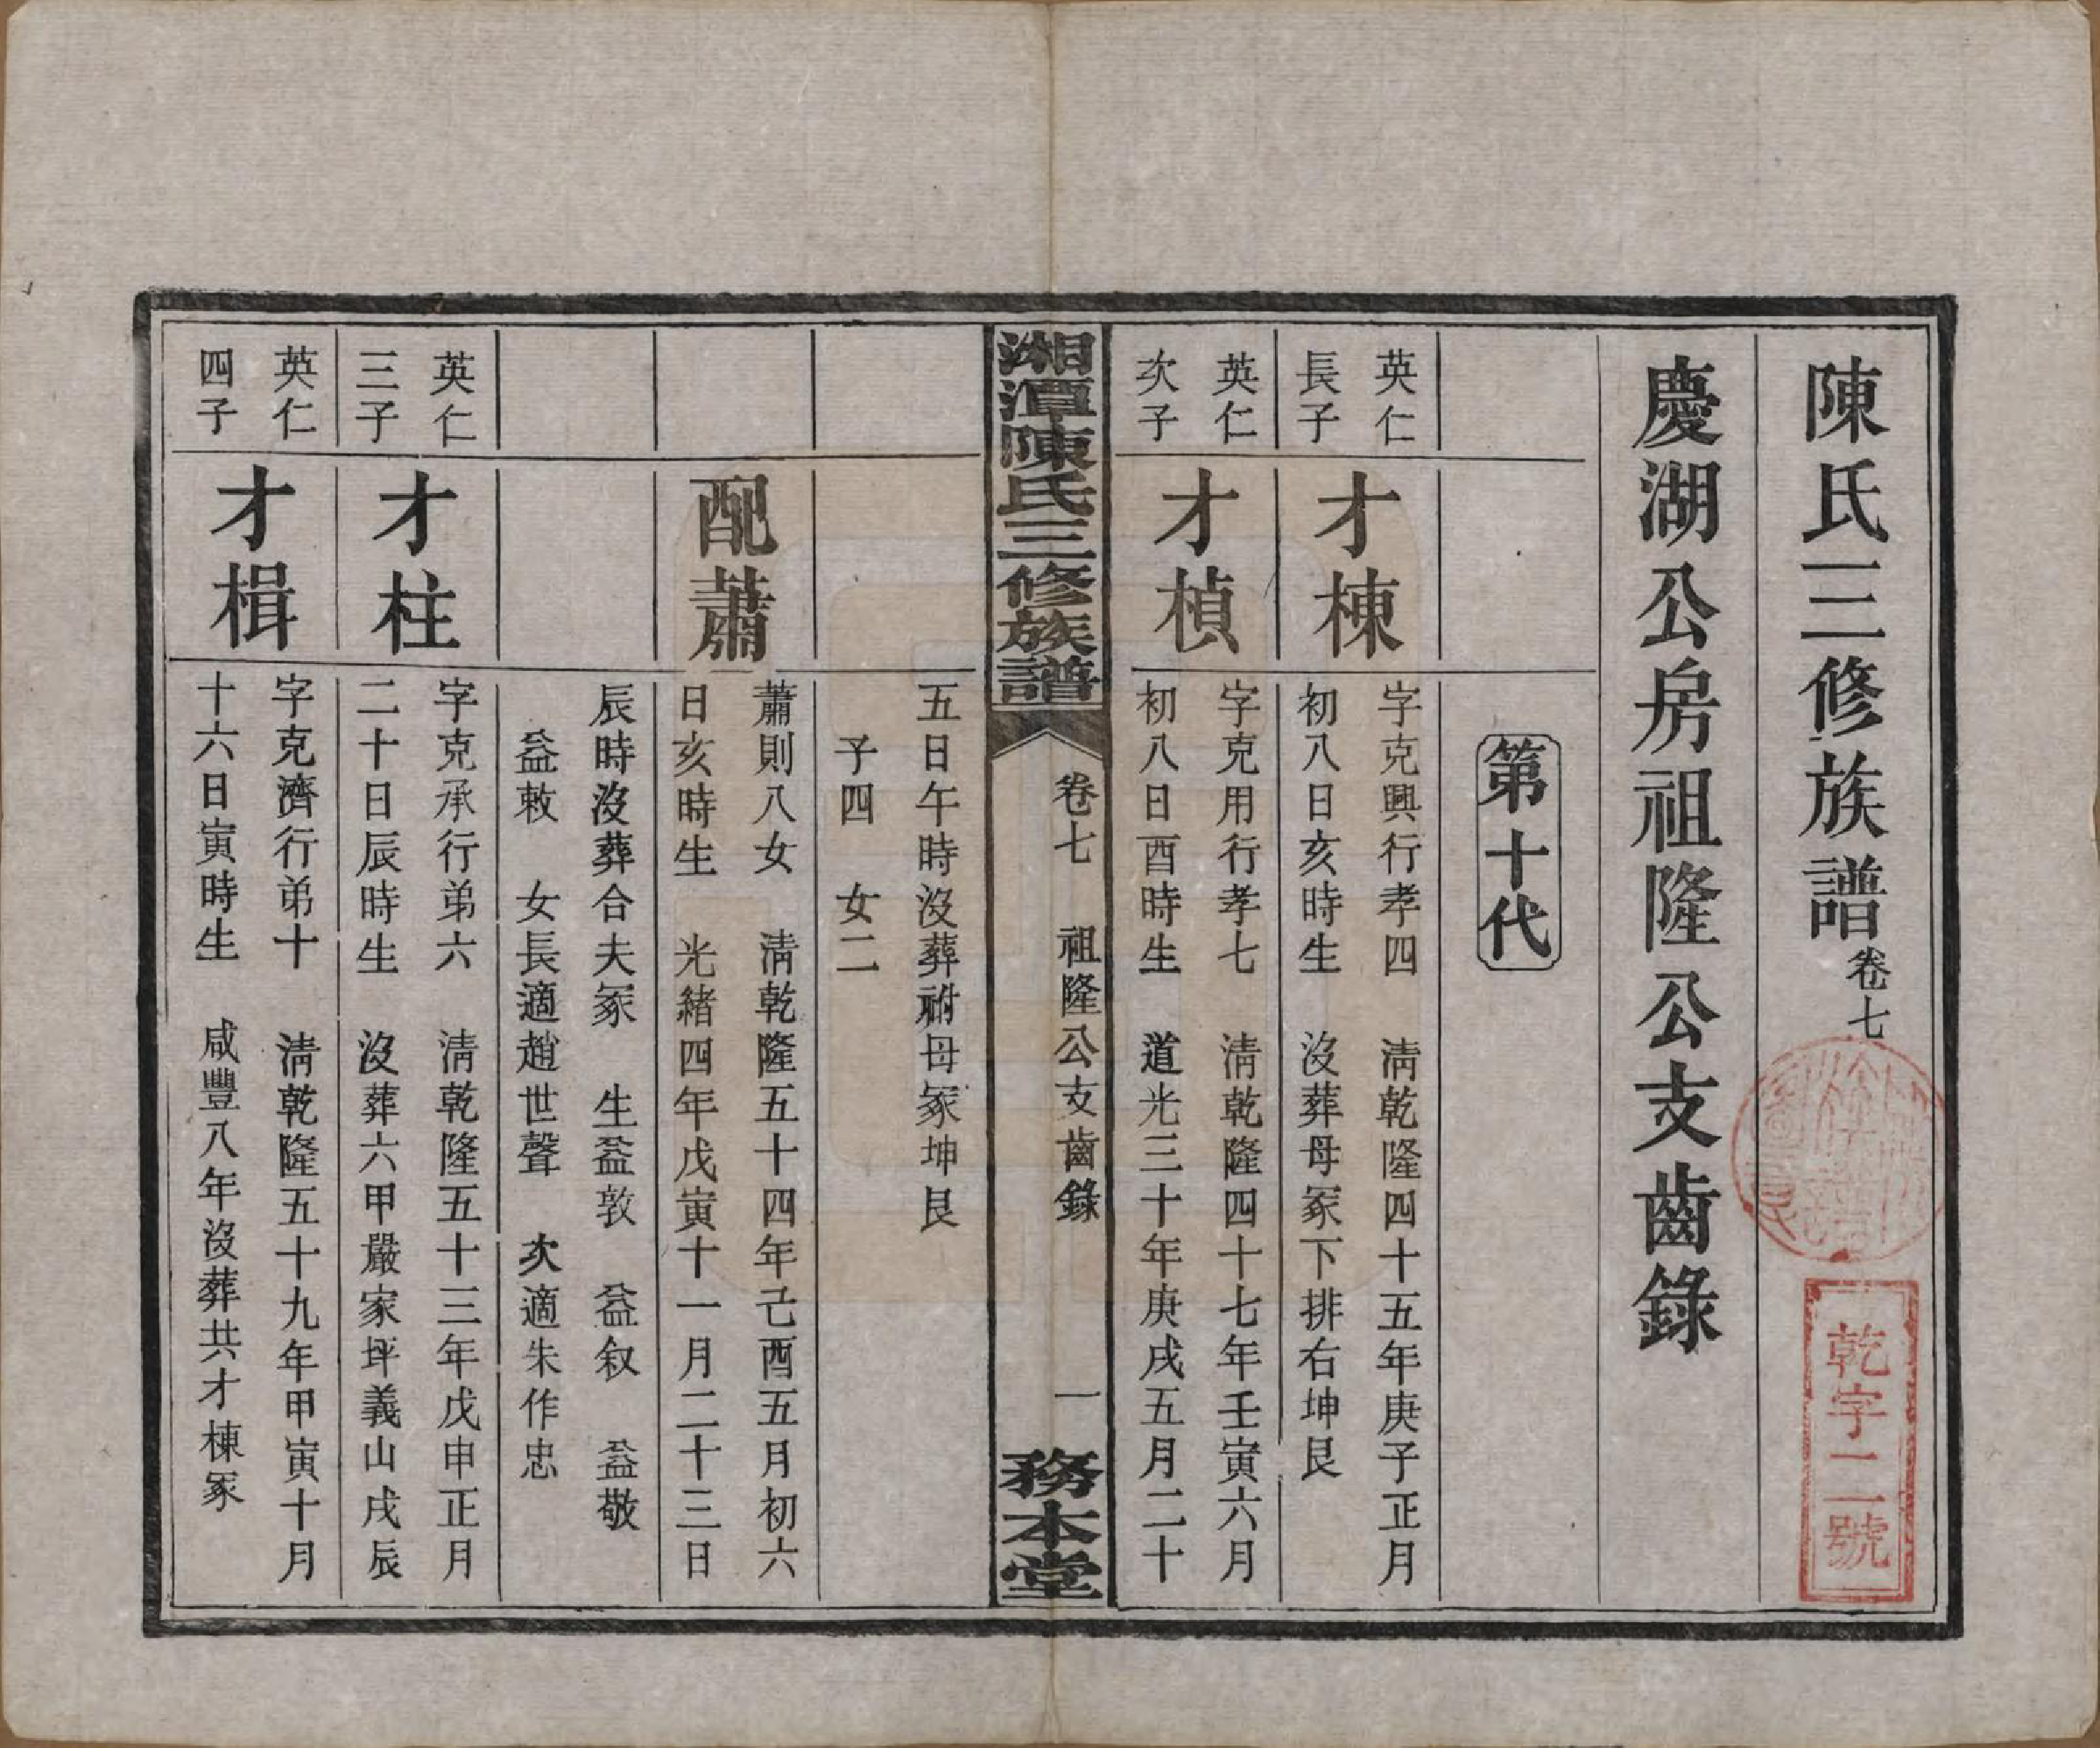 陳氏三修族譜卷七
乾字一二號
慶湖公房祖隆公支齒錄
第十代
英仁
長子
才棟
字克興行孝四 淸乾隆四十五年庚子正月
初八日亥時生 沒葬母冢下排右坤艮
英仁
次子
才楨
字克用行孝七 淸乾隆四十七年壬寅六月
初八日酉時生 道光三十年庚戌五月二十
湘潭陳氏三修族譜
卷七 祖隆公支齒錄 一
務本堂
五日午時沒葬祔母冢坤艮
子四 女二
配蕭
蕭則八女 淸乾隆五十四年己酉五月初六
日亥時生 光緒四年戊寅十一月二十三日
辰時沒葬合夫冢 生益敦 益叙 益敬
益敕 女長適趙世聲 次適朱作忠
英仁
三子
才柱
字克承行弟六 淸乾隆五十三年戊申正月
二十日辰時生 沒葬六甲嚴家坪義山戌辰
英仁
四子
才楫
字克濟行弟十 淸乾隆五十九年甲寅十月
十六日寅時生 咸豐八年沒葬共才棟冢